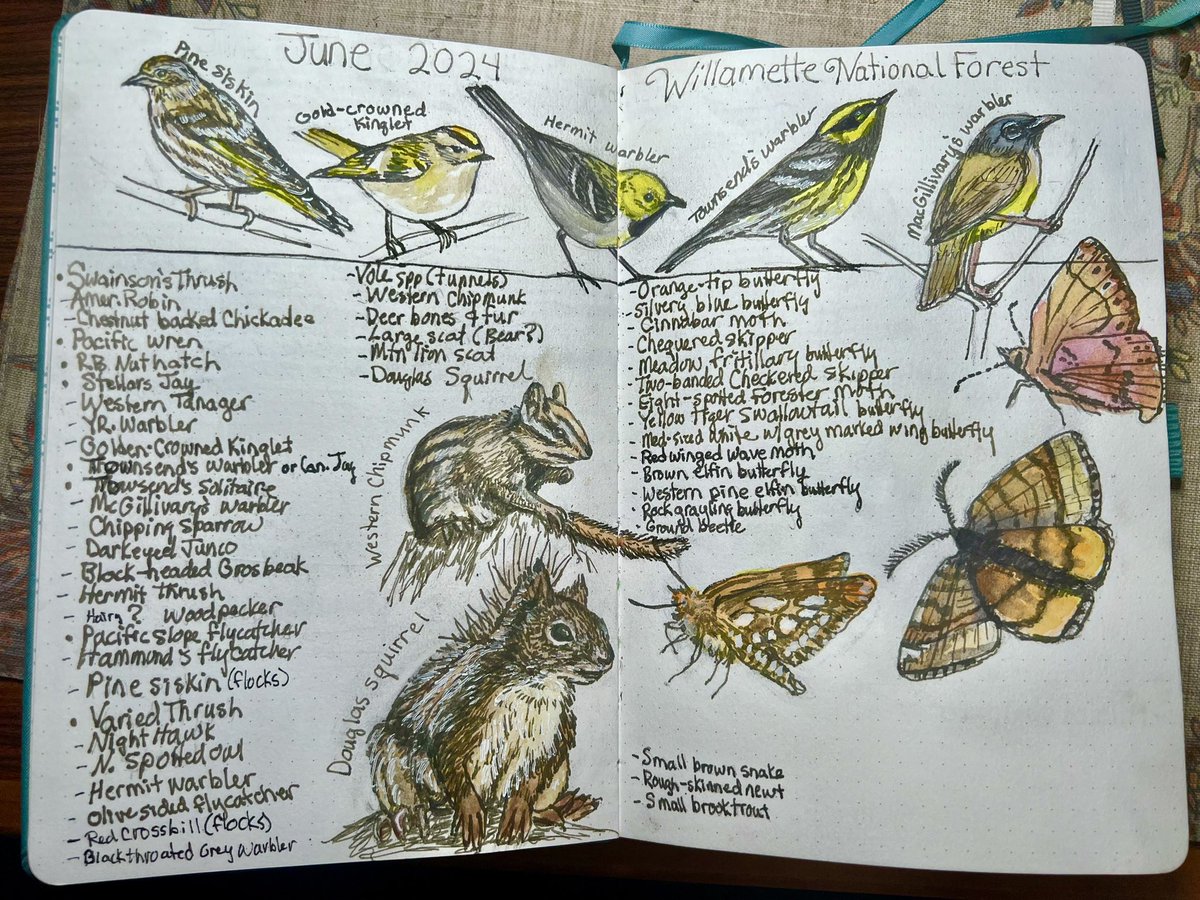 June 2024
Willamette National Forest
Pine siskin
Gold-crowned
Kinglet
Hermit warbler
Townsend's warbler
MacGillivary's warbler
• Swainson's Thrush
- Amer. Robin
- Chestnut backed Chickadee
• Pacific wren
• R.B. Nuthatch
• Stellars Jay
- Western Tanager
- YR. Warbler
- Golden-Crowned Kinglet
• Townsend's warbler or Can. Jay
• Towsend's Solitaire
- McGillivary's warbler
- Chipping Sparrow
- Darkeyed Junco
- Black-headed Grosbeak
- Hermit Thrush
- Hairy? Woodpecker
• Pacific Slope flycatcher
- Hammund's flycatcher
- Pine siskin (flocks)
• Varied Thrush
- Night Hawk
- N. Spotted owl
- Hermit warbler
- Olive sided flycatcher
- Red Crossbill (flocks)
- Blackthroated Grey Warbler
- Vole spp (tunnels)
- Western Chipmunk
- Deer bones & fur
- Large scat (Bear?)
- Mtn lion scat
- Douglas Squirrel
Western Chipmunk
Douglas squirrel
- Orange-tip butterfly
- Silvery blue butterfly
- Cinnabar moth
- Chequered skipper
- Meadow fritillary butterfly
- Two-banded Checkered skipper
- Eight-spotted Forester moth
- Yellow Tiger Swallowtail butterfly
- Med-sized white w/grey marked wing butterfly
- Red winged wave moth
- Brown elfin butterfly
- Western pine elfin butterfly
- Rock grayling butterfly
- Ground Beetle
- Small brown snake
- Rough-skinned newt
- Small brook trout